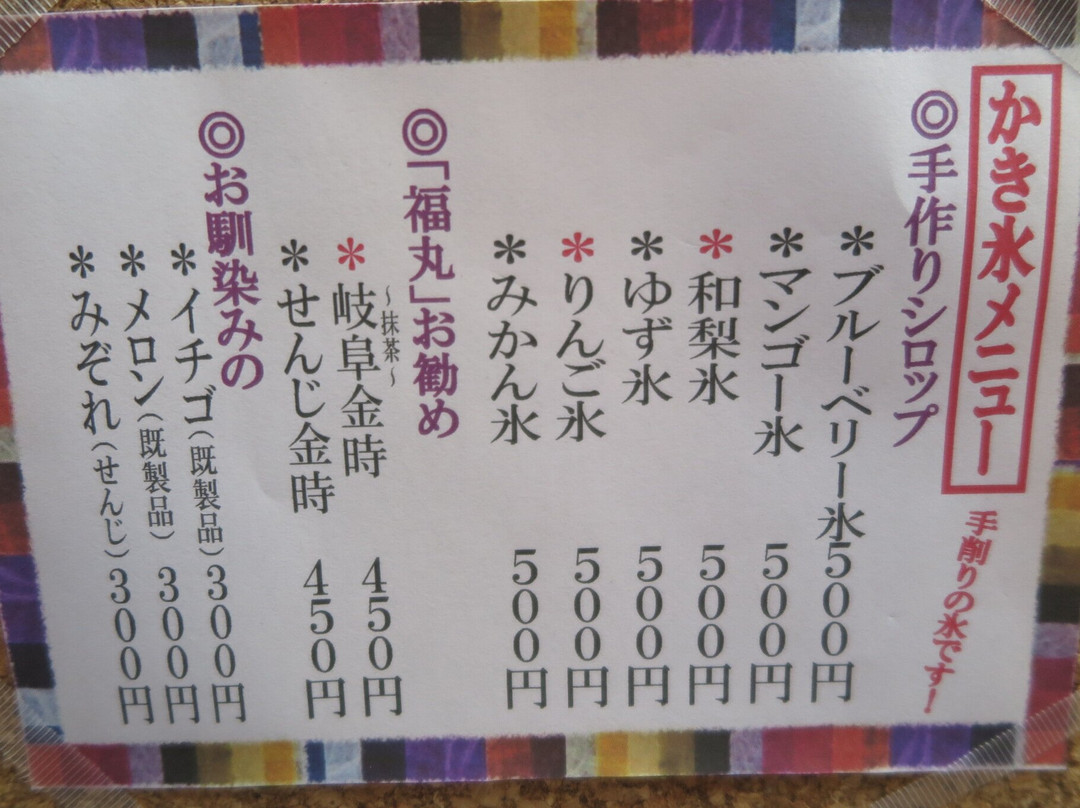 かき氷メニュー
手削りの氷です!
◎手作りシロップ
*ブルーベリー氷500円
*マンゴー氷 500円
*和梨氷 500円
*ゆず氷 500円
*りんご氷 500円
*みかん氷 500円
◎「福丸」お勧め
~抹茶~
*岐阜金時 450円
*せんじ金時 450円
◎お馴染みの
*イチゴ(既製品)300円
*メロン(既製品) 300円
*みぞれ(せんじ)300円